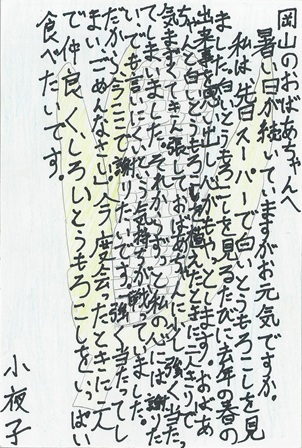 岡山のおばあちゃんへ
暑い日が続いていますがお元気ですか。
私は先日スーパーで白いとうもろこしを見
ました。白いとうもろこしを見るたびに去年の春の
出来事を思い出し心がもやっとします。おばあ
ちゃんと白いとうもろこしを植えたときに二人きりで
気まずくてきん張しておばあちゃんに少し強く当たっ
てしまいました。それからずっと私の心には謝りた
いでも言いにくいという気持ちが戦っていました。
だからここで謝りたいです。「強く当たってし
まいごめんなさい」今度会ったときに二人
で仲良く、しろいとうもろこしをいっぱい
食べたいです。
小夜子